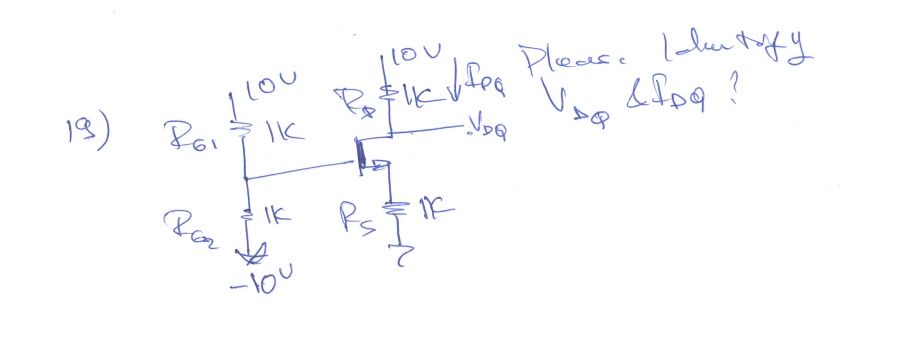 19)
10V
RG1
1K
RG2
1K
-10V
10V
RD
1K
IDQ
.VDQ
RS
1K
Please Identify
VDQ & IDQ ?